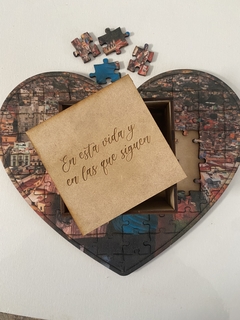 En esta vida y
en las que siguen